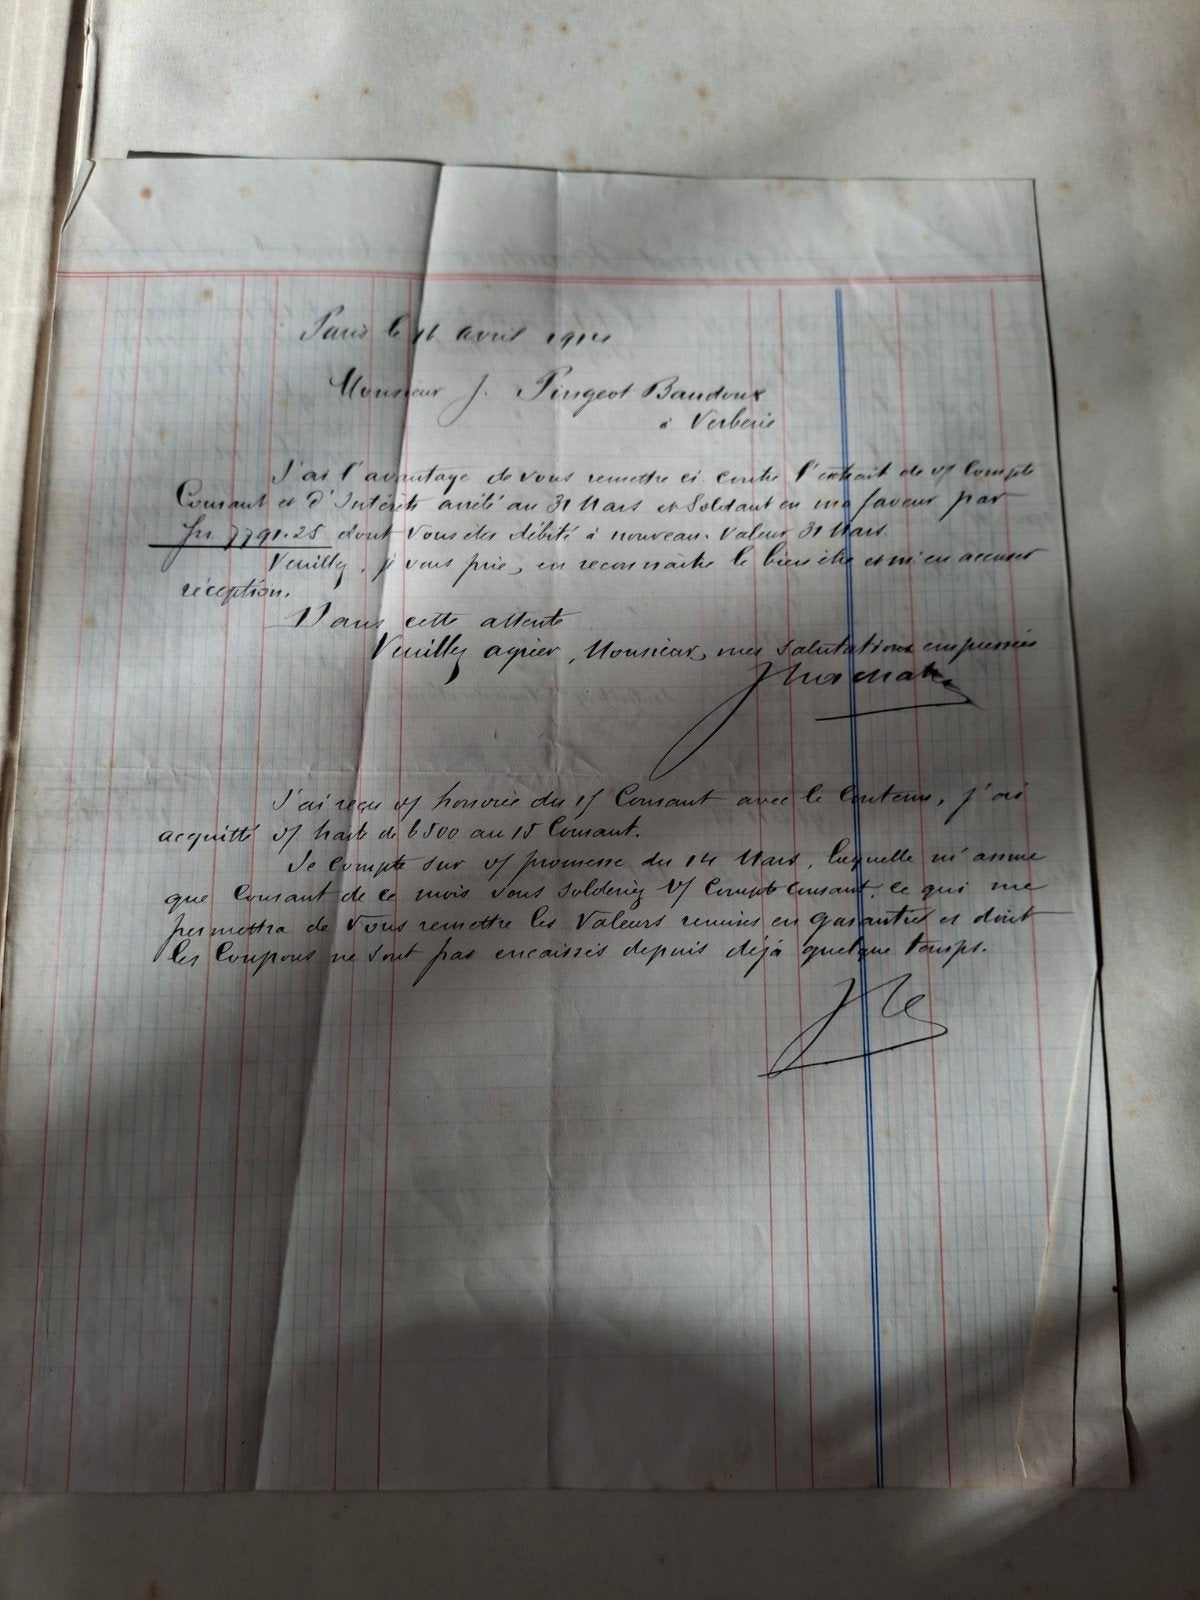 Paris le 16 avril 1914
Monsieur J. Pingeot Baudoux
à Verberie
J'ai l'avantage de vous remettre ci contre l'extrait de v/ Compte
Courant et d'Intérêts arrêté au 31 Mars et Soldant en ma faveur par
frs 7791.25 dont vous êtes débité à nouveau. Valeur 31 Mars.
Veuillez, je vous prie, en reconnaître le bien être et m'en accuser
réception.
Dans cette attente
Veuillez agréer, Monsieur, mes Salutations empressées
J'ai reçu v/ honorée du 15 Courant avec le Contenu, j'ai
acquitté v/ traite de 6500 au 15 Courant.
Je Compte sur v/ promesse du 14 Mars, laquelle m'assure
que Courant de ce mois vous Solderiez v/ Compte Courant, ce qui me
permettra de Vous remettre les Valeurs remises en garanties et dont
les Coupons ne sont pas encaissés depuis déjà quelque temps.